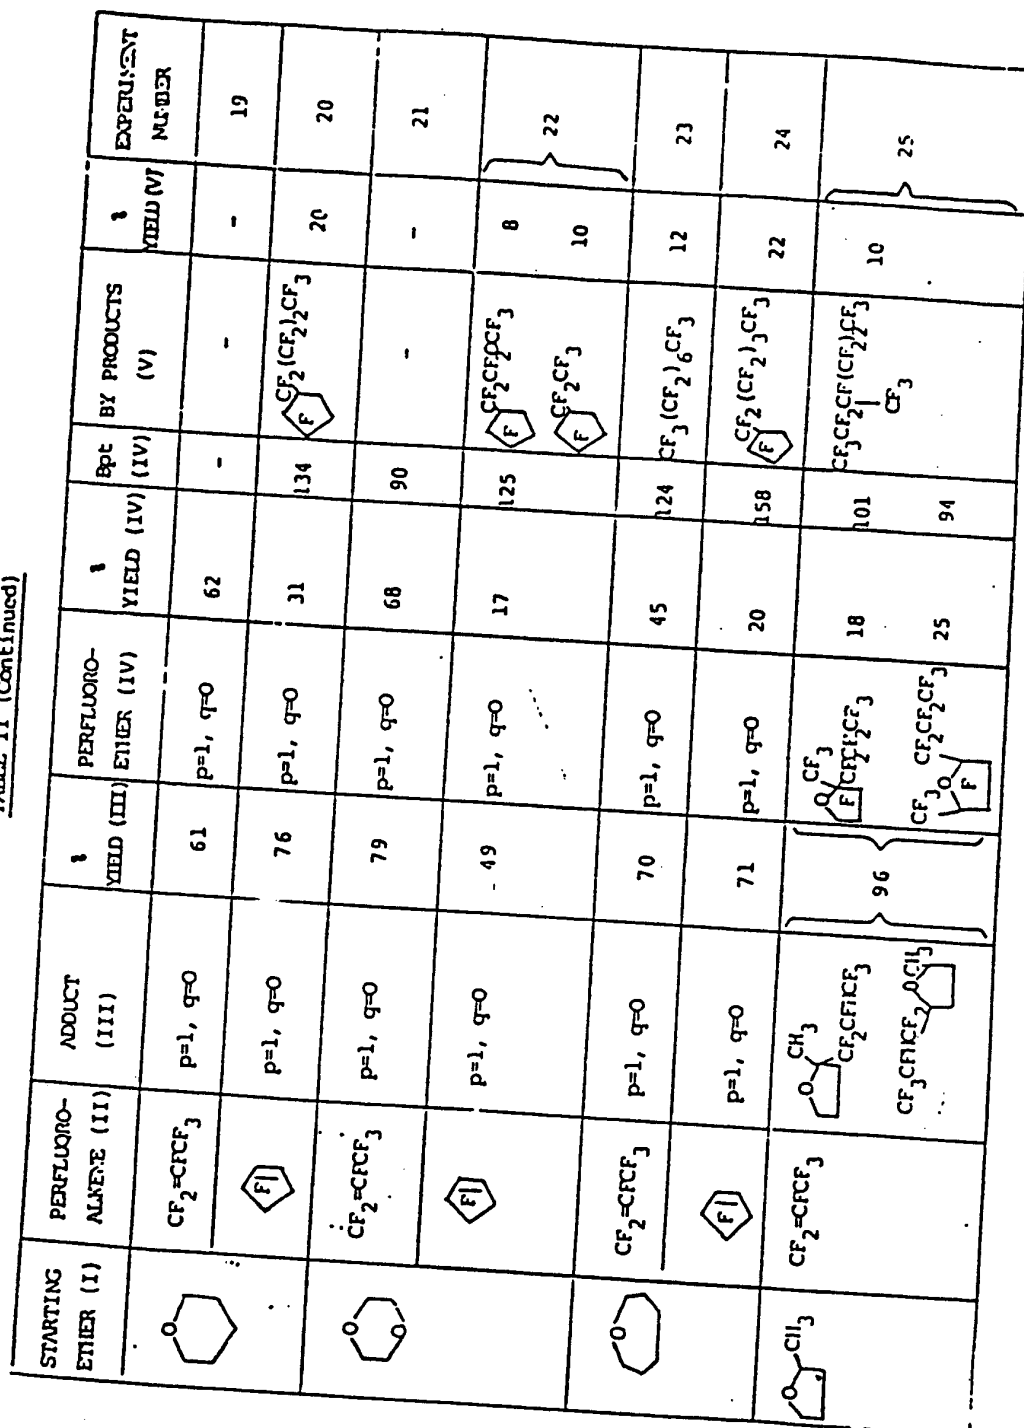 TABLE II (Continued)
STARTING ETHER (I) | PERFLUORO-ALKENE (II) | ADDUCT (III) | % YIELD (III) | PERFLUORO-ETHER (IV) | % YIELD (IV) | Bpt (IV) | BY PRODUCTS (V) | % YIELD (V) | EXPERIMENT NUMBER
O | CF2=CFCF3 | p=1, q=0 | 61 | p=1, q=0 | 62 | - | - | - | 19
F | p=1, q=0 | 76 | p=1, q=0 | 31 | 134 | F CF2(CF2)2CF3 | 20 | 20
O O | CF2=CFCF3 | p=1, q=0 | 79 | p=1, q=0 | 68 | 90 | - | - | 21
F | p=1, q=0 | 49 | p=1, q=0 | 17 | 125 | F CF2CF2OCF3 | 8 | 22
F CF2CF3 | 10
O | CF2=CFCF3 | p=1, q=0 | 70 | p=1, q=0 | 45 | 124 | CF3(CF2)6CF3 | 12 | 23
F | p=1, q=0 | 71 | p=1, q=0 | 20 | 158 | F CF2(CF2)3CF3 | 22 | 24
O CH3 | CF2=CFCF3 | O CH3 CF2CFHCF3 | 96 | O CF3 F CF2CF2CF3 | 18 | 101 | CF3CF2CF(CF2)2CF3 CF3 | 10 | 25
CF3CFHCF2 O CH3 | CF3 O F CF2CF2CF3 | 25 | 94